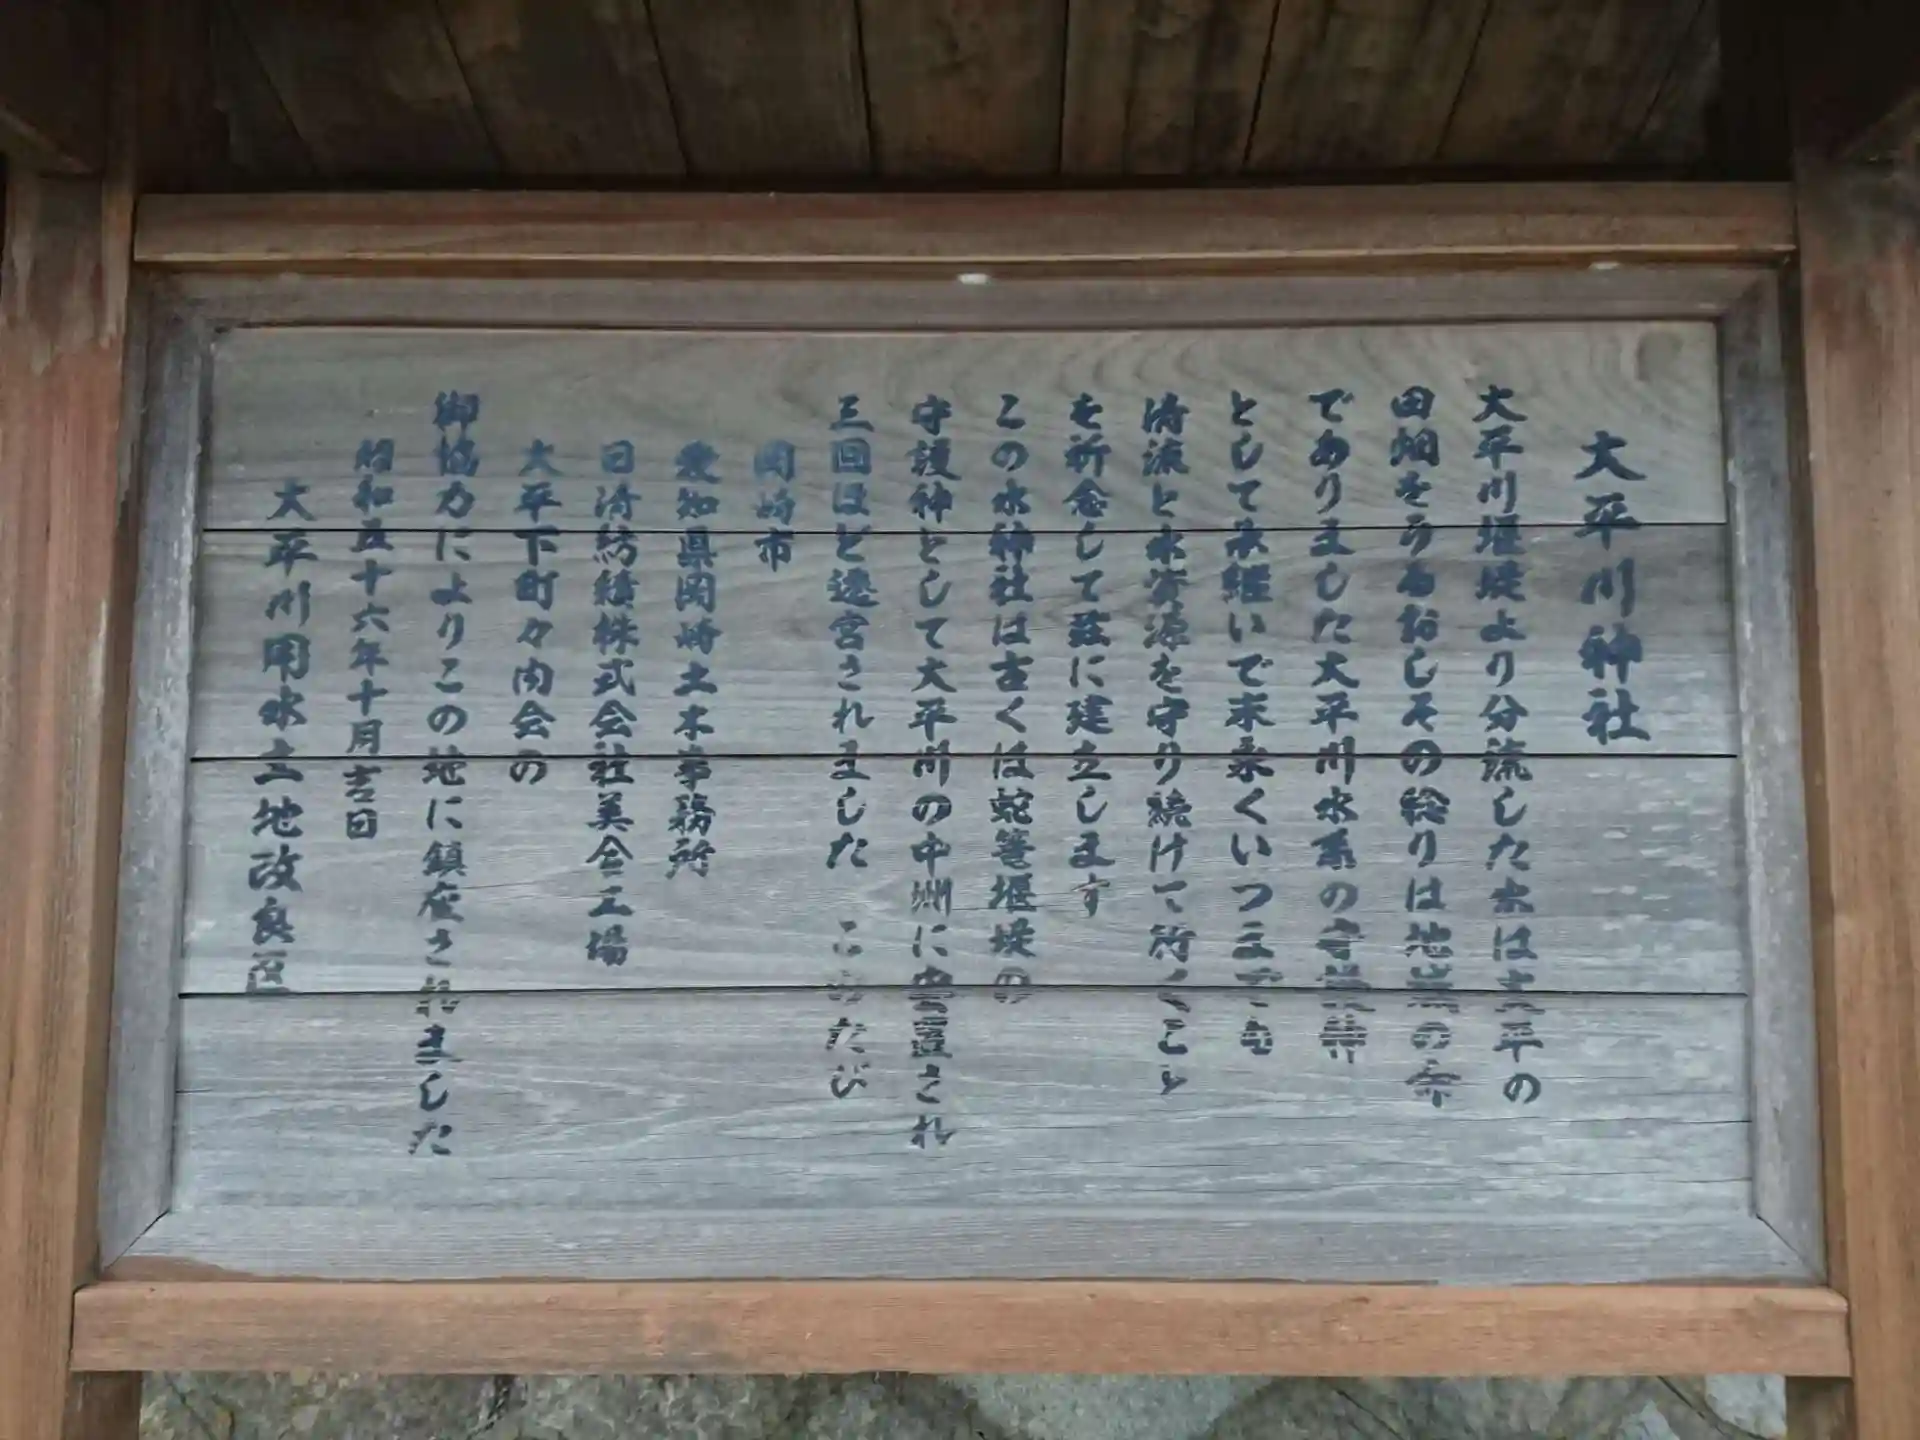 大平川神社
大平川堰堤より分流した水は大平の
田畑をうるおしその稔りは地域の命
でありました大平川水系の守護神
として承継いで末永くいつまでも
清流と水資源を守り続けて行くこと
を祈念して茲に建立します
この水神社は古くは蛇篭堰堤の
守護神として大平川の中洲に安置され
三回ほど遷宮されました このたび
岡崎市
愛知県岡崎土木事務所
日清紡績株式会社美合工場
大平下町々内会の
御協力によりこの地に鎮座されました
昭和五十六年十月吉日
大平川用水土地改良区